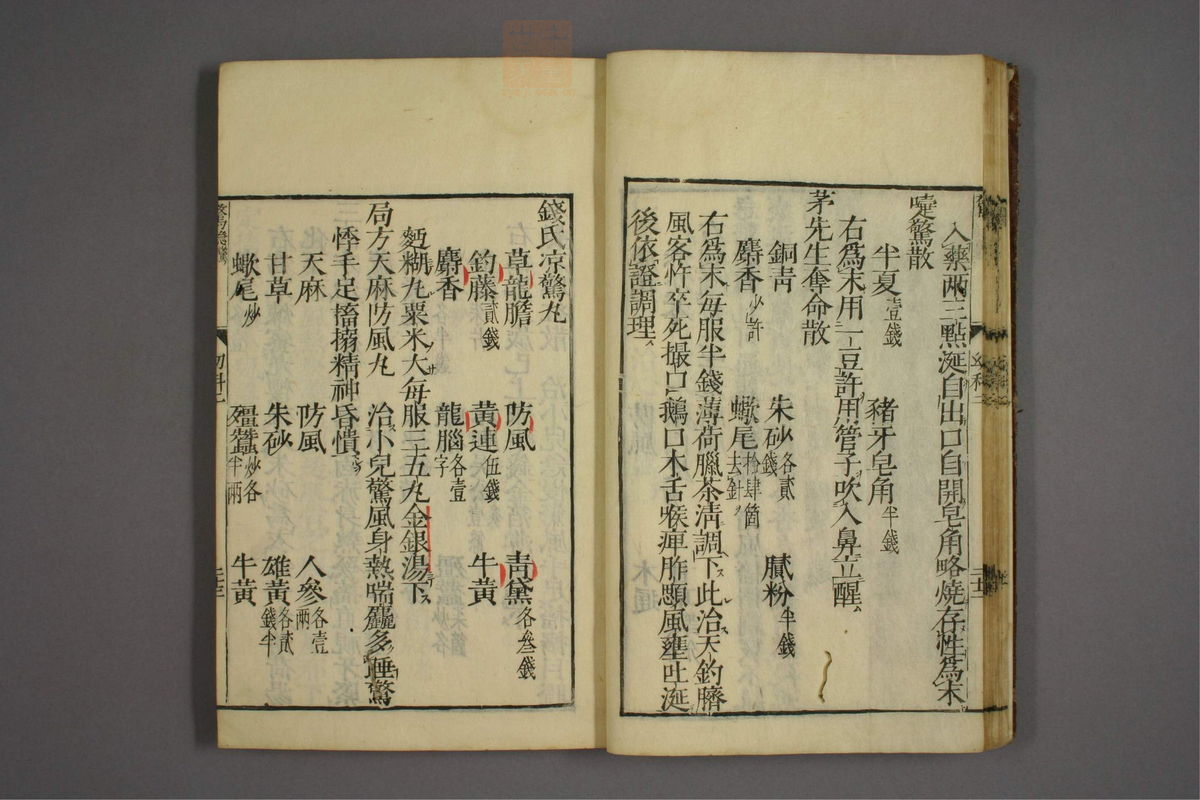 入藥兩三點涎自出口自開皂角略燒存性為末
嚏驚散
半夏壹錢 豬牙皂角半錢
右為末用一豆許用管子吹入鼻立醒
茅先生奪命散
銅青 朱砂各貳錢 膩粉半錢
麝香少許 蠍尾去針拾肆箇
右為末每服半錢薄荷臘茶清調下此治天釣臍
風客忤卒死撮口鵝口木舌喉痺胙顋風壅吐涎
後依證調理
錢氏凉驚丸
草龍膽 防風 青黛各叁錢
釣藤貳錢 黃連伍錢 牛黃
麝香 龍腦各壹字
麪糊丸粟米大每服三五丸金銀湯下
局方天麻防風丸 治小兒驚風身熱喘麤多睡驚
悸手足搐搦精神昏憒
天麻 防風 人參各壹兩
甘草 朱砂 雄黃各貳錢半
蠍尾炒 殭蠶炒各半兩 牛黃